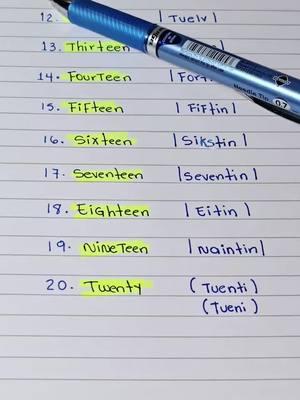 12. | Tuelv |
13. Thirteen
14. FourTeen | Fort
15. FiFTeen | FiFtin |
16. Sixteen | Sikstin |
17. Seventeen | Seventin |
18. Eighteen | Eitin |
19. NineTeen | Naintin |
20. Twenty ( Tuenti )
( Tueni )
Needle Tip 0.7